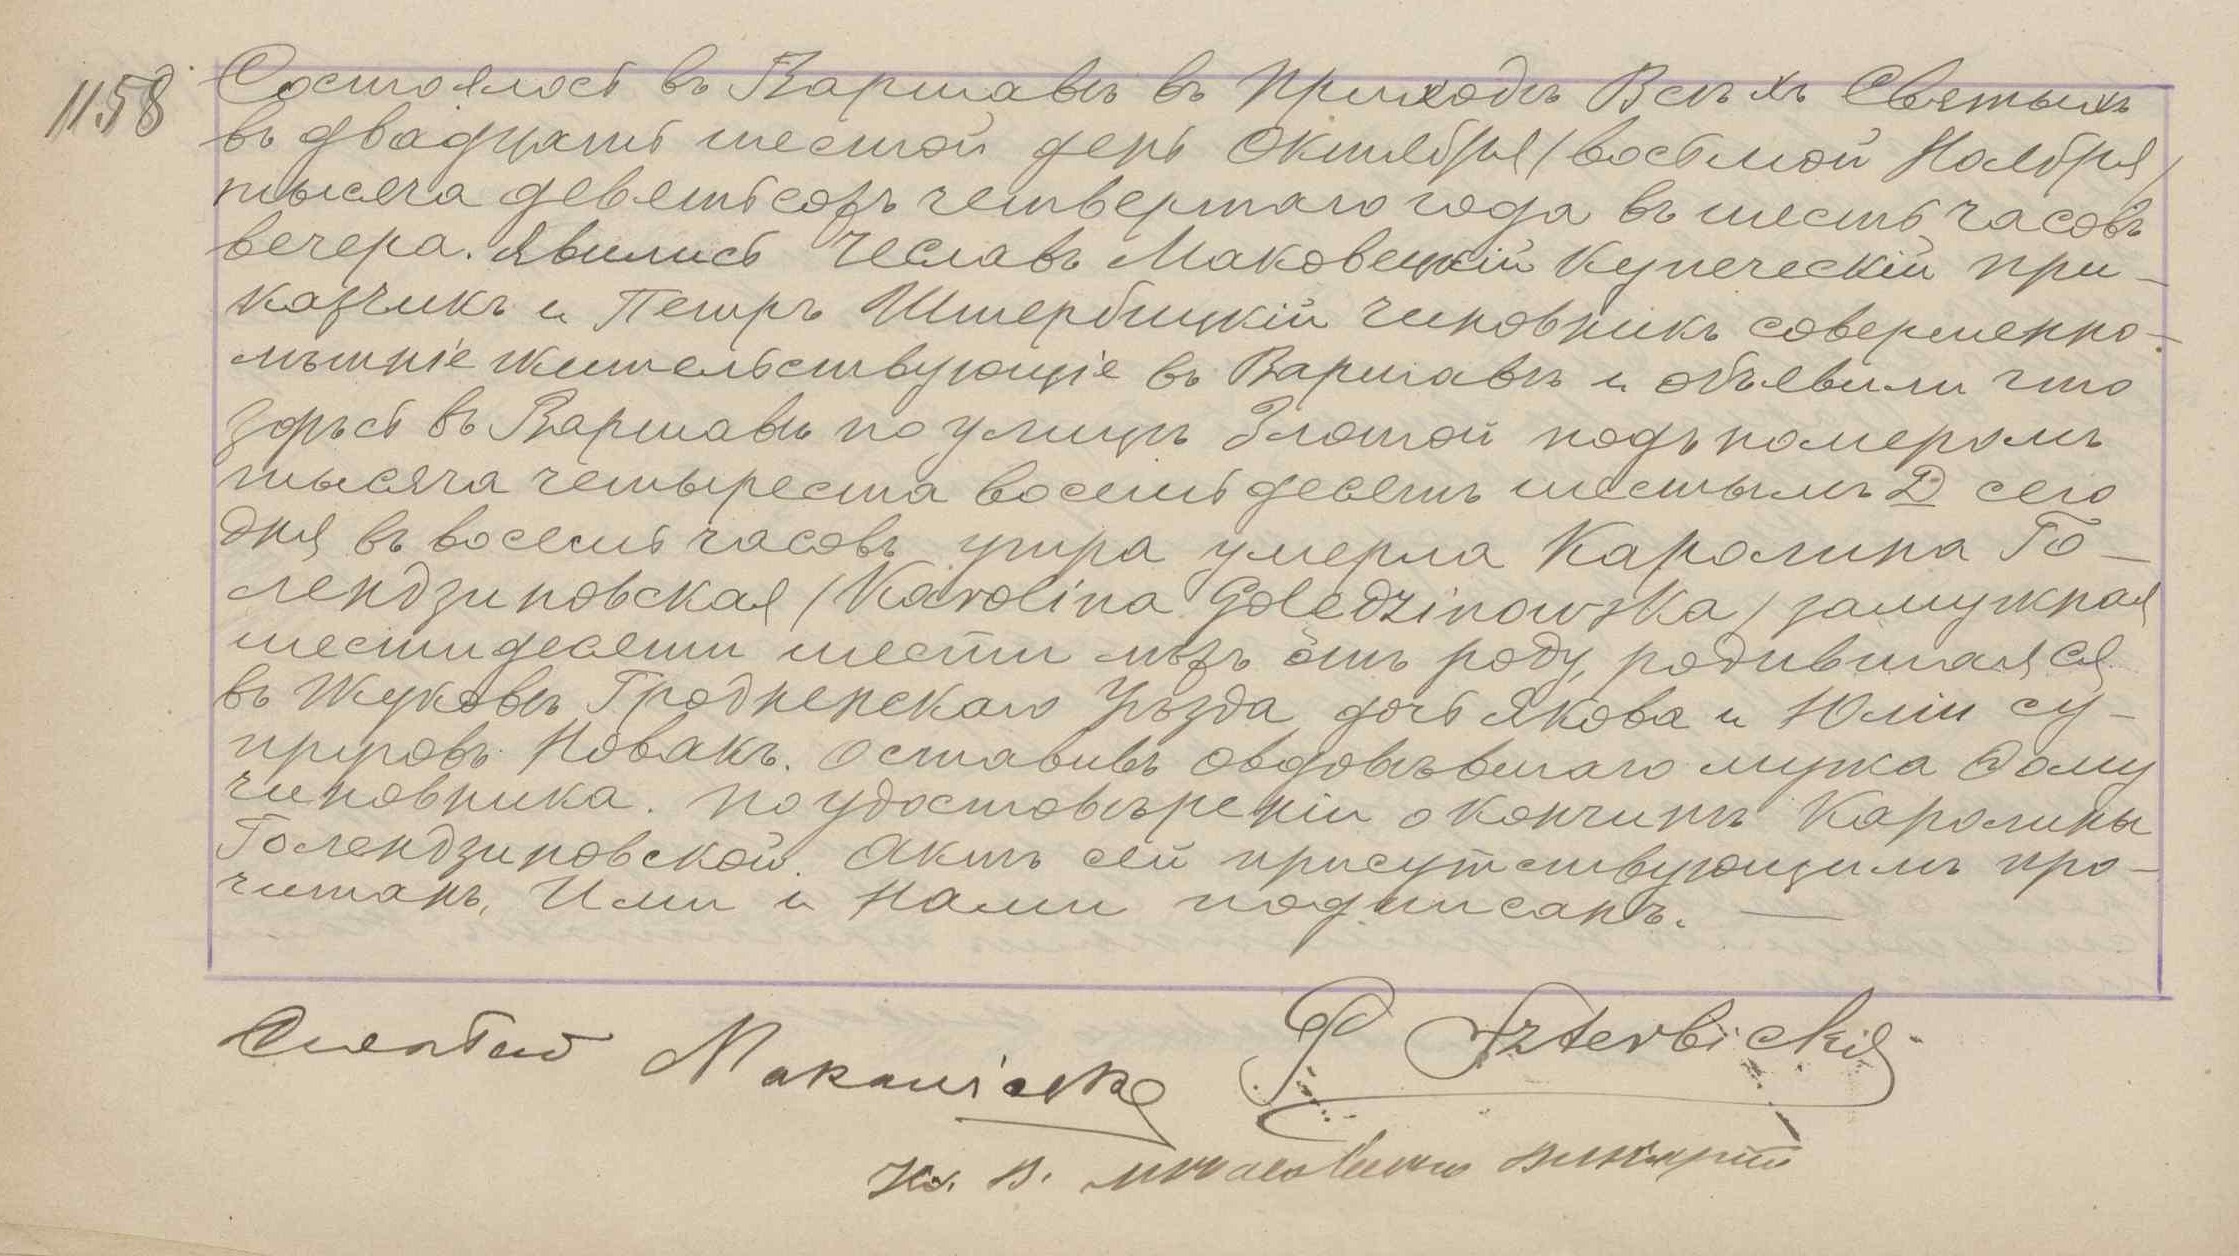 1158
Состоялось въ Варшавѣ въ Приходѣ Всѣхъ Святыхъ
въ двадцать шестой день Октября /восьмой Ноября/
тысяча девятьсотъ четвертаго года въ шесть часовъ
вечера. Явились Чеславъ Маковецкій купеческій при-
казчикъ и Петръ Штербицкій чиновникъ совершенно-
лѣтніе жительствующіе въ Варшавѣ и объявили что
здѣсь въ Варшавѣ по улицѣ Златой подъ номеромъ
тысяча четыреста восемьдесятъ шестымъ D сего
дня въ восемь часовъ утра умерла Каролина Го-
лендзиновская /Karolina Golędzinowska/ замужная
шестидесяти шести лѣтъ отъ роду, родившаяся
въ Жуковѣ Гродненскаго Уѣзда дочь Якова и Юліи су-
пруговъ Новакъ. Оставивъ овдовѣвшаго мужа Ѳому
чиновника. По удостовѣреніи о кончинѣ Каролины
Голендзиновской. Актъ сей присутствующимъ про-
читанъ, Ими и Нами подписанъ. —
Makowiecki P Szterbicki
Кс. В.